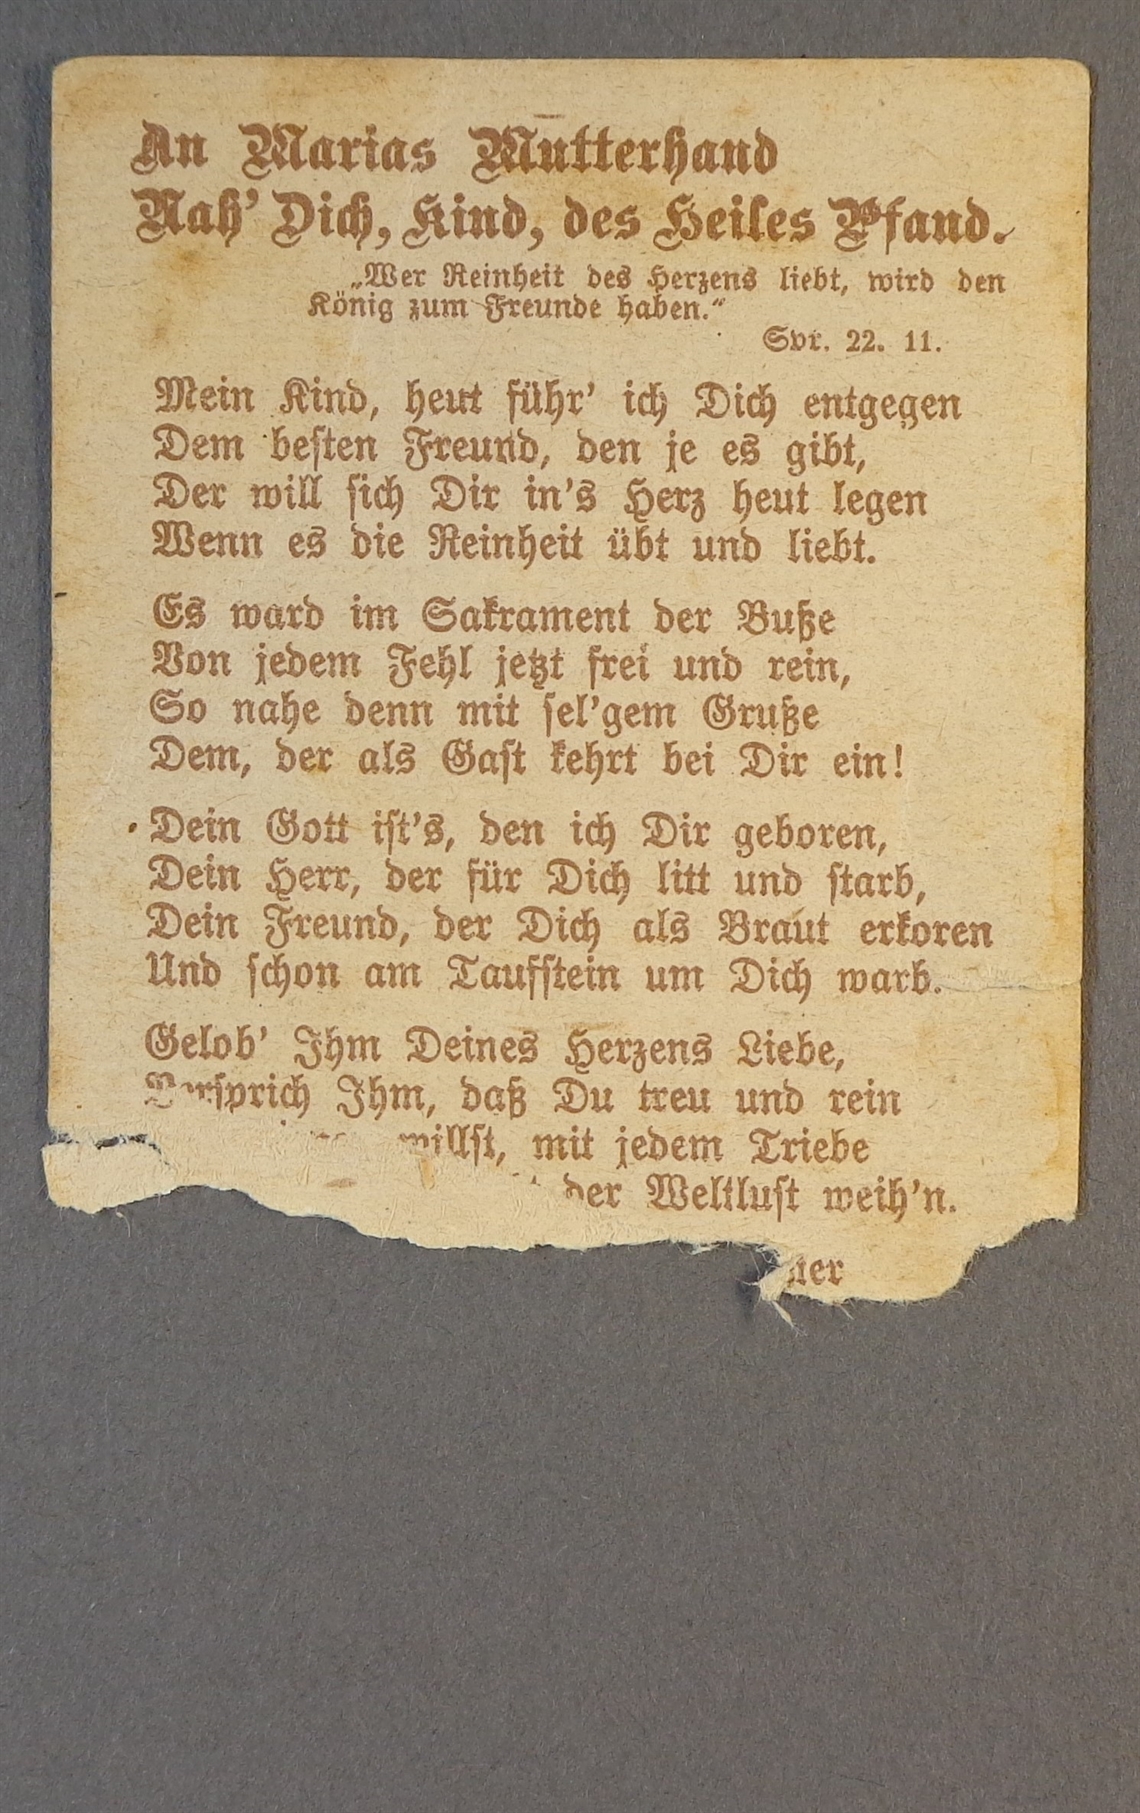 An Marias Mutterhand
Nah’ Dich, Kind, des Heiles Pfand.
„Wer Reinheit des Herzens liebt, wird den
König zum Freunde haben.“
Spr. 22. 11.
Mein Kind, heut führ’ ich Dich entgegen
Dem besten Freund, den je es gibt,
Der will sich Dir in’s Herz heut legen
Wenn es die Reinheit übt und liebt.
Es ward im Sakrament der Buße
Von jedem Fehl jetzt frei und rein,
So nahe denn mit sel’gem Gruße
Dem, der als Gast kehrt bei Dir ein!
Dein Gott ist’s, den ich Dir geboren,
Dein Herr, der für Dich litt und starb,
Dein Freund, der Dich als Braut erkoren
Und schon am Taufstein um Dich warb.
Gelob’ Ihm Deines Herzens Liebe,
Versprich Ihm, daß Du treu und rein
willst, mit jedem Triebe
der Weltlust weih’n.